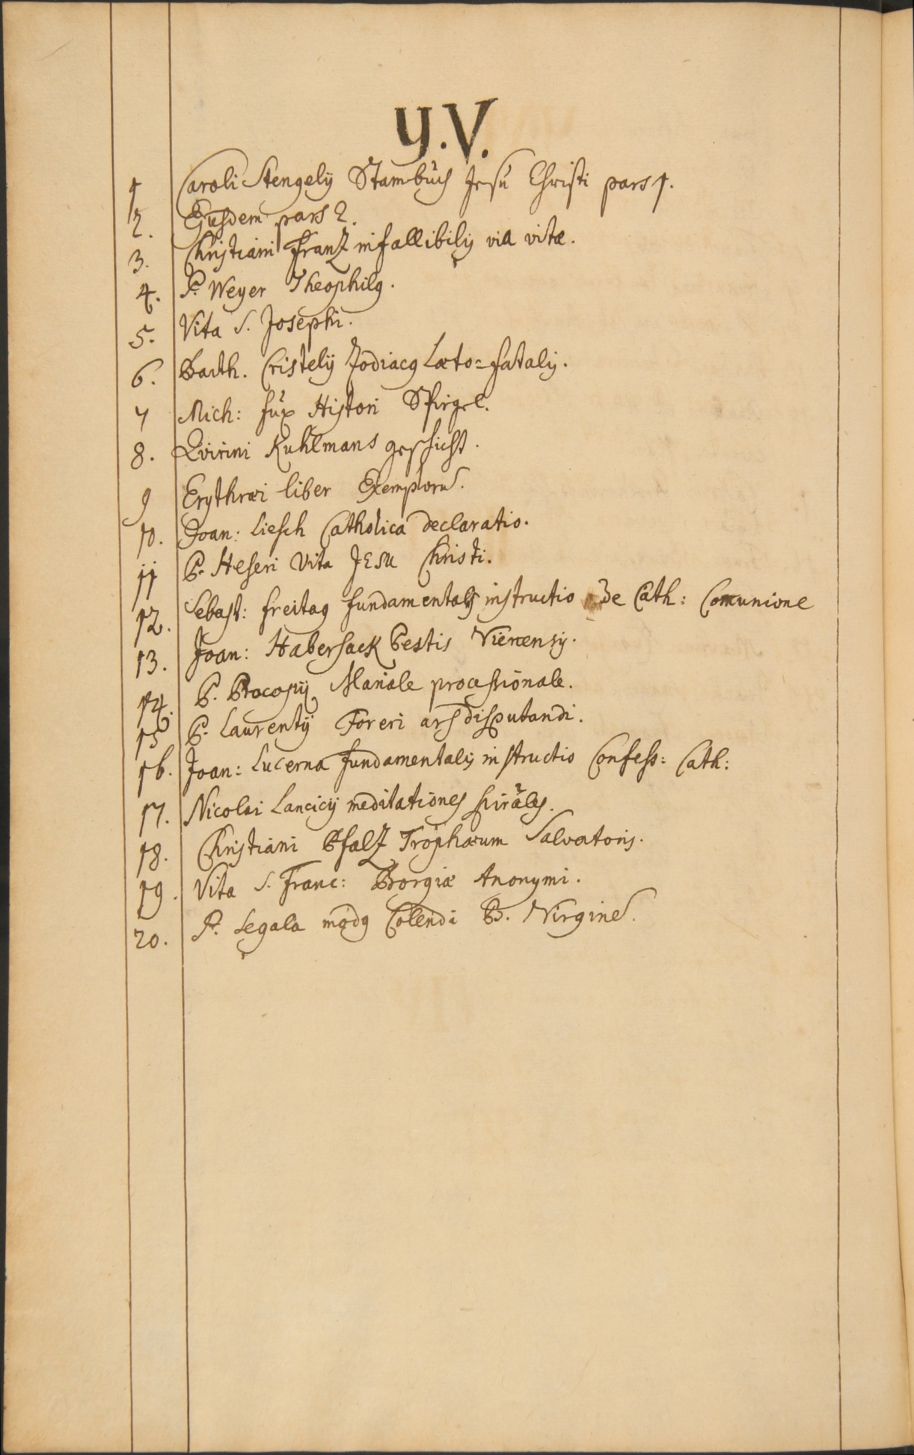 Y.V.
1 Caroli Stengelÿ Stambuch Jesu Christi pars 1.
2. Ejusdem pars 2.
3. Christiani Franz infallibilis via vitæ.
4. P. Weyer Theophilus.
5. Vita S. Josephi.
6. Barth. Cristelÿ Zodiacus Læto=fatalis.
7 Mich: fux Histori Spigel.
8. Quirini Kuhlmans geschicht.
9 Erythræi liber Exemplorum.
10. Joan: Liesch Catholica declaratio.
11 P. Heseri Vita JESU Christi.
12. Sebast: freitag fundamentalis instructio de Cath: Com̄unione
13. Joan: Habersack Pestis Viennensis.
14. P. Procopÿ Mariale processionale.
15 P. Laurentÿ Foreri ars disputandi.
16. Joan: Lucerna fundamentalis instructio Confess: Cath:
17. Nicolai Lancicÿ meditationes spirâles.
18. Christiani Pfalz Trophæum Salvatoris.
19. Vita S. Franc: Borgiæ Anonymi.
20. P. Segala modus Colendi B. Virginem.